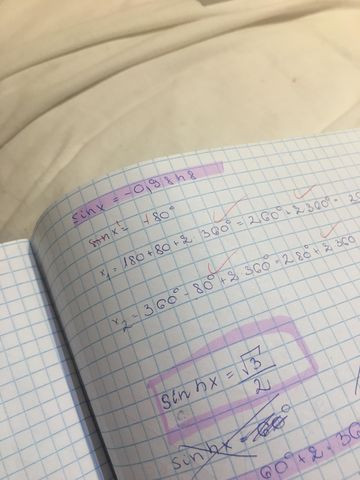 sin x = -0,9848
sin x' = +80°
x₁ = 180 + 80 + 2 360° = 260° + 2 360° =
x₂ = 360° - 80° + 2 360° = 280° + 2 360
sin hx = √3/2
sin hx = 60°
60° + 2 * 36